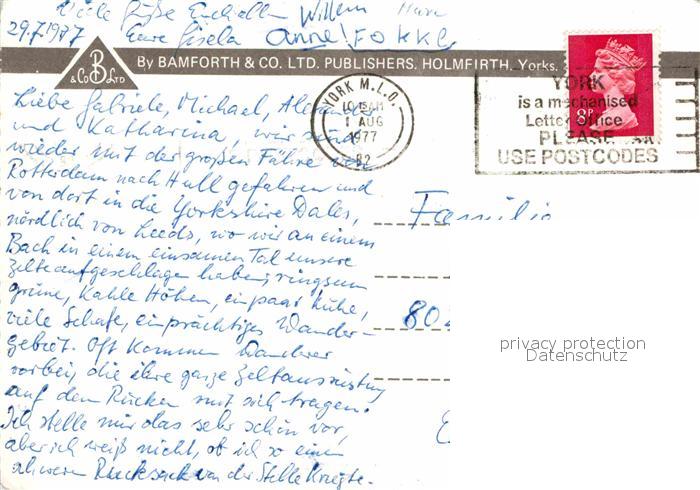 Viele Grüße Euch allen Willem
29.7.1977 Eure Gisela Anne! FOKKE
B & Co LTD
By BAMFORTH & CO. LTD. PUBLISHERS. HOLMFIRTH, Yorks.
YORK M.L.O.
10 15AM
1 AUG
1977
YORK
is a mechanised
Letter Office
PLEASE
USE POSTCODES
8P
Liebe Gabriele, Michael, Alexander
und Katharina, wir sind
wieder mit der großen Fähre von
Rotterdam nach Hull gefahren und
von dort in die Yorkshire Dales,
nördlich von Leeds, wo wir an einem
Bach in einem einsamen Tal unsere
Zelte aufgeschlagen haben; ringsum
grüne, kahle Höhen, ein paar Kühe,
viele Schafe, ein prächtiges Wander-
gebiet. Oft kommen Wanderer
vorbei, die ihre ganze Zeltausrüstung
auf dem Rücken mit sich tragen.
Ich stelle mir das sehr schön vor,
aber ich weiß nicht, ob ich so einen
schweren Rucksack von der Stelle kriegte.
Familie
80
privacy protection
Datenschutz